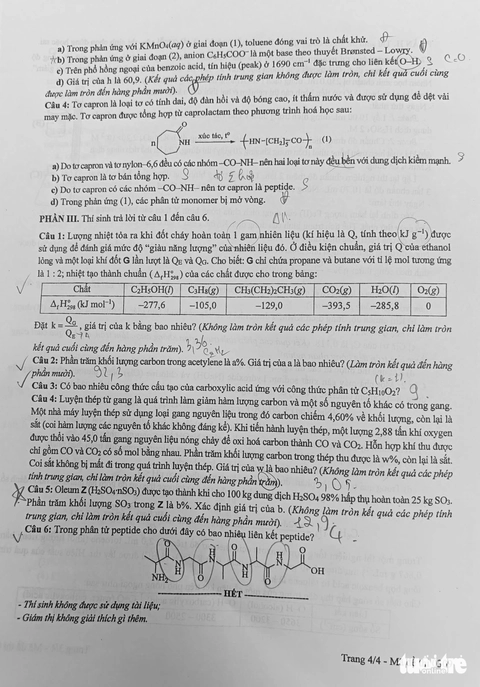 a) Trong phản ứng với KMnO₄(aq) ở giai đoạn (1), toluene đóng vai trò là chất khử.
b) Trong phản ứng ở giai đoạn (2), anion C₆H₅COO⁻ là một base theo thuyết Brønsted – Lowry.
c) Trên phổ hồng ngoại của benzoic acid, tín hiệu (peak) ở 1690 cm⁻¹ đặc trưng cho liên kết O–H.
d) Giá trị của h là 60,9. (Kết quả các phép tính trung gian không được làm tròn, chỉ kết quả cuối cùng
được làm tròn đến hàng phần mười).
Câu 4: Tơ capron là loại tơ có tính dai, độ đàn hồi và độ bóng cao, ít thấm nước và được sử dụng để dệt vải
may mặc. Tơ capron được tổng hợp từ caprolactam theo phương trình hoá học sau:
n O NH xúc tác, t° (HN–[CH₂]₅–CO)n (1)
a) Do tơ capron và tơ nylon–6,6 đều có các nhóm –CO–NH– nên hai loại tơ này đều bền với dung dịch kiềm mạnh.
b) Tơ capron là tơ bán tổng hợp.
c) Do tơ capron có các nhóm –CO–NH– nên tơ capron là peptide.
d) Trong phản ứng (1), các phân tử monomer bị mở vòng.
PHẦN III. Thí sinh trả lời từ câu 1 đến câu 6.
Câu 1: Lượng nhiệt tỏa ra khi đốt cháy hoàn toàn 1 gam nhiên liệu (kí hiệu là Q, tính theo kJ g⁻¹) được
sử dụng để đánh giá mức độ “giàu năng lượng” của nhiên liệu đó. Ở điều kiện chuẩn, giá trị Q của ethanol
lỏng và một loại khí đốt G lần lượt là Q_E và Q_G. Cho biết: G chỉ chứa propane và butane với tỉ lệ mol tương ứng
là 1 : 2; nhiệt tạo thành chuẩn (Δ_fH°₂₉₈) của các chất được cho trong bảng:
Chất C₂H₅OH(l) C₃H₈(g) CH₃(CH₂)₂CH₃(g) CO₂(g) H₂O(l) O₂(g)
Δ_fH°₂₉₈ (kJ mol⁻¹) –277,6 –105,0 –129,0 –393,5 –285,8 0
Đặt k = Q_G/Q_E, giá trị của k bằng bao nhiêu? (Không làm tròn kết quả các phép tính trung gian, chỉ làm tròn
kết quả cuối cùng đến hàng phần trăm).
Câu 2: Phần trăm khối lượng carbon trong acetylene là a%. Giá trị của a là bao nhiêu? (Làm tròn kết quả đến hàng
phần mười). 92,3
Câu 3: Có bao nhiêu công thức cấu tạo của carboxylic acid ứng với công thức phân tử C₅H₁₀O₂?
Câu 4: Luyện thép từ gang là quá trình làm giảm hàm lượng carbon và một số nguyên tố khác có trong gang.
Một nhà máy luyện thép sử dụng loại gang nguyên liệu trong đó carbon chiếm 4,60% về khối lượng, còn lại là
sắt (coi hàm lượng các nguyên tố khác không đáng kể). Khi tiến hành luyện thép, một lượng 2,88 tấn khí oxygen
được thổi vào 45,0 tấn gang nguyên liệu nóng chảy để oxi hoá carbon thành CO và CO₂. Hỗn hợp khí thu được
chỉ gồm CO và CO₂ có số mol bằng nhau. Phần trăm khối lượng carbon trong thép thu được là w%, còn lại là sắt.
Coi sắt không bị mất đi trong quá trình luyện thép. Giá trị của w là bao nhiêu? (Không làm tròn kết quả các phép
tính trung gian, chỉ làm tròn kết quả cuối cùng đến hàng phần trăm). 3,05
Câu 5: Oleum Z (H₂SO₄·nSO₃) được tạo thành khi cho 100 kg dung dịch H₂SO₄ 98% hấp thụ hoàn toàn 25 kg SO₃.
Phần trăm khối lượng SO₃ trong Z là b%. Xác định giá trị của b. (Không làm tròn kết quả các phép tính
trung gian, chỉ làm tròn kết quả cuối cùng đến hàng phần mười). 12,9
Câu 6: Trong phân tử peptide cho dưới đây có bao nhiêu liên kết peptide? 4
NH₂ O H N O H N O H N O H N O OH
HẾT
- Thí sinh không được sử dụng tài liệu;
- Giám thị không giải thích gì thêm.
Trang 4/4 - M
tuổi trẻ
online